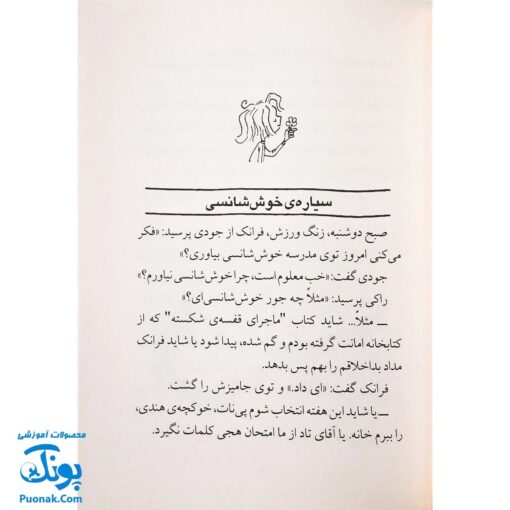 سیاره‌ی خوش‌شانسی
صبح دوشنبه، زنگ ورزش، فرانک از جودی پرسید: «فکر
می‌کنی امروز توی مدرسه خوش‌شانسی بیاوری؟»
جودی گفت: «خب معلوم است، چرا خوش‌شانسی نیاورم؟»
راکی پرسید: «مثلاً چه جور خوش‌شانسی‌ای؟»
ــ مثلاً... شاید کتاب "ماجرای قفسه‌ی شکسته" که از
کتابخانه امانت گرفته بودم و گم شده، پیدا شود یا شاید فرانک
مداد بداخلاقم را بهم پس بدهد.
فرانک گفت: «ای داد.» و توی جامیزش را گشت.
ــ یا شاید این هفته انتخاب شوم پی‌نات، خوکچه‌ی هندی،
را ببرم خانه. یا آقای تاد از ما امتحان هجی کلمات نگیرد.
محصولات آموزشی
پونک
Puonak.Com